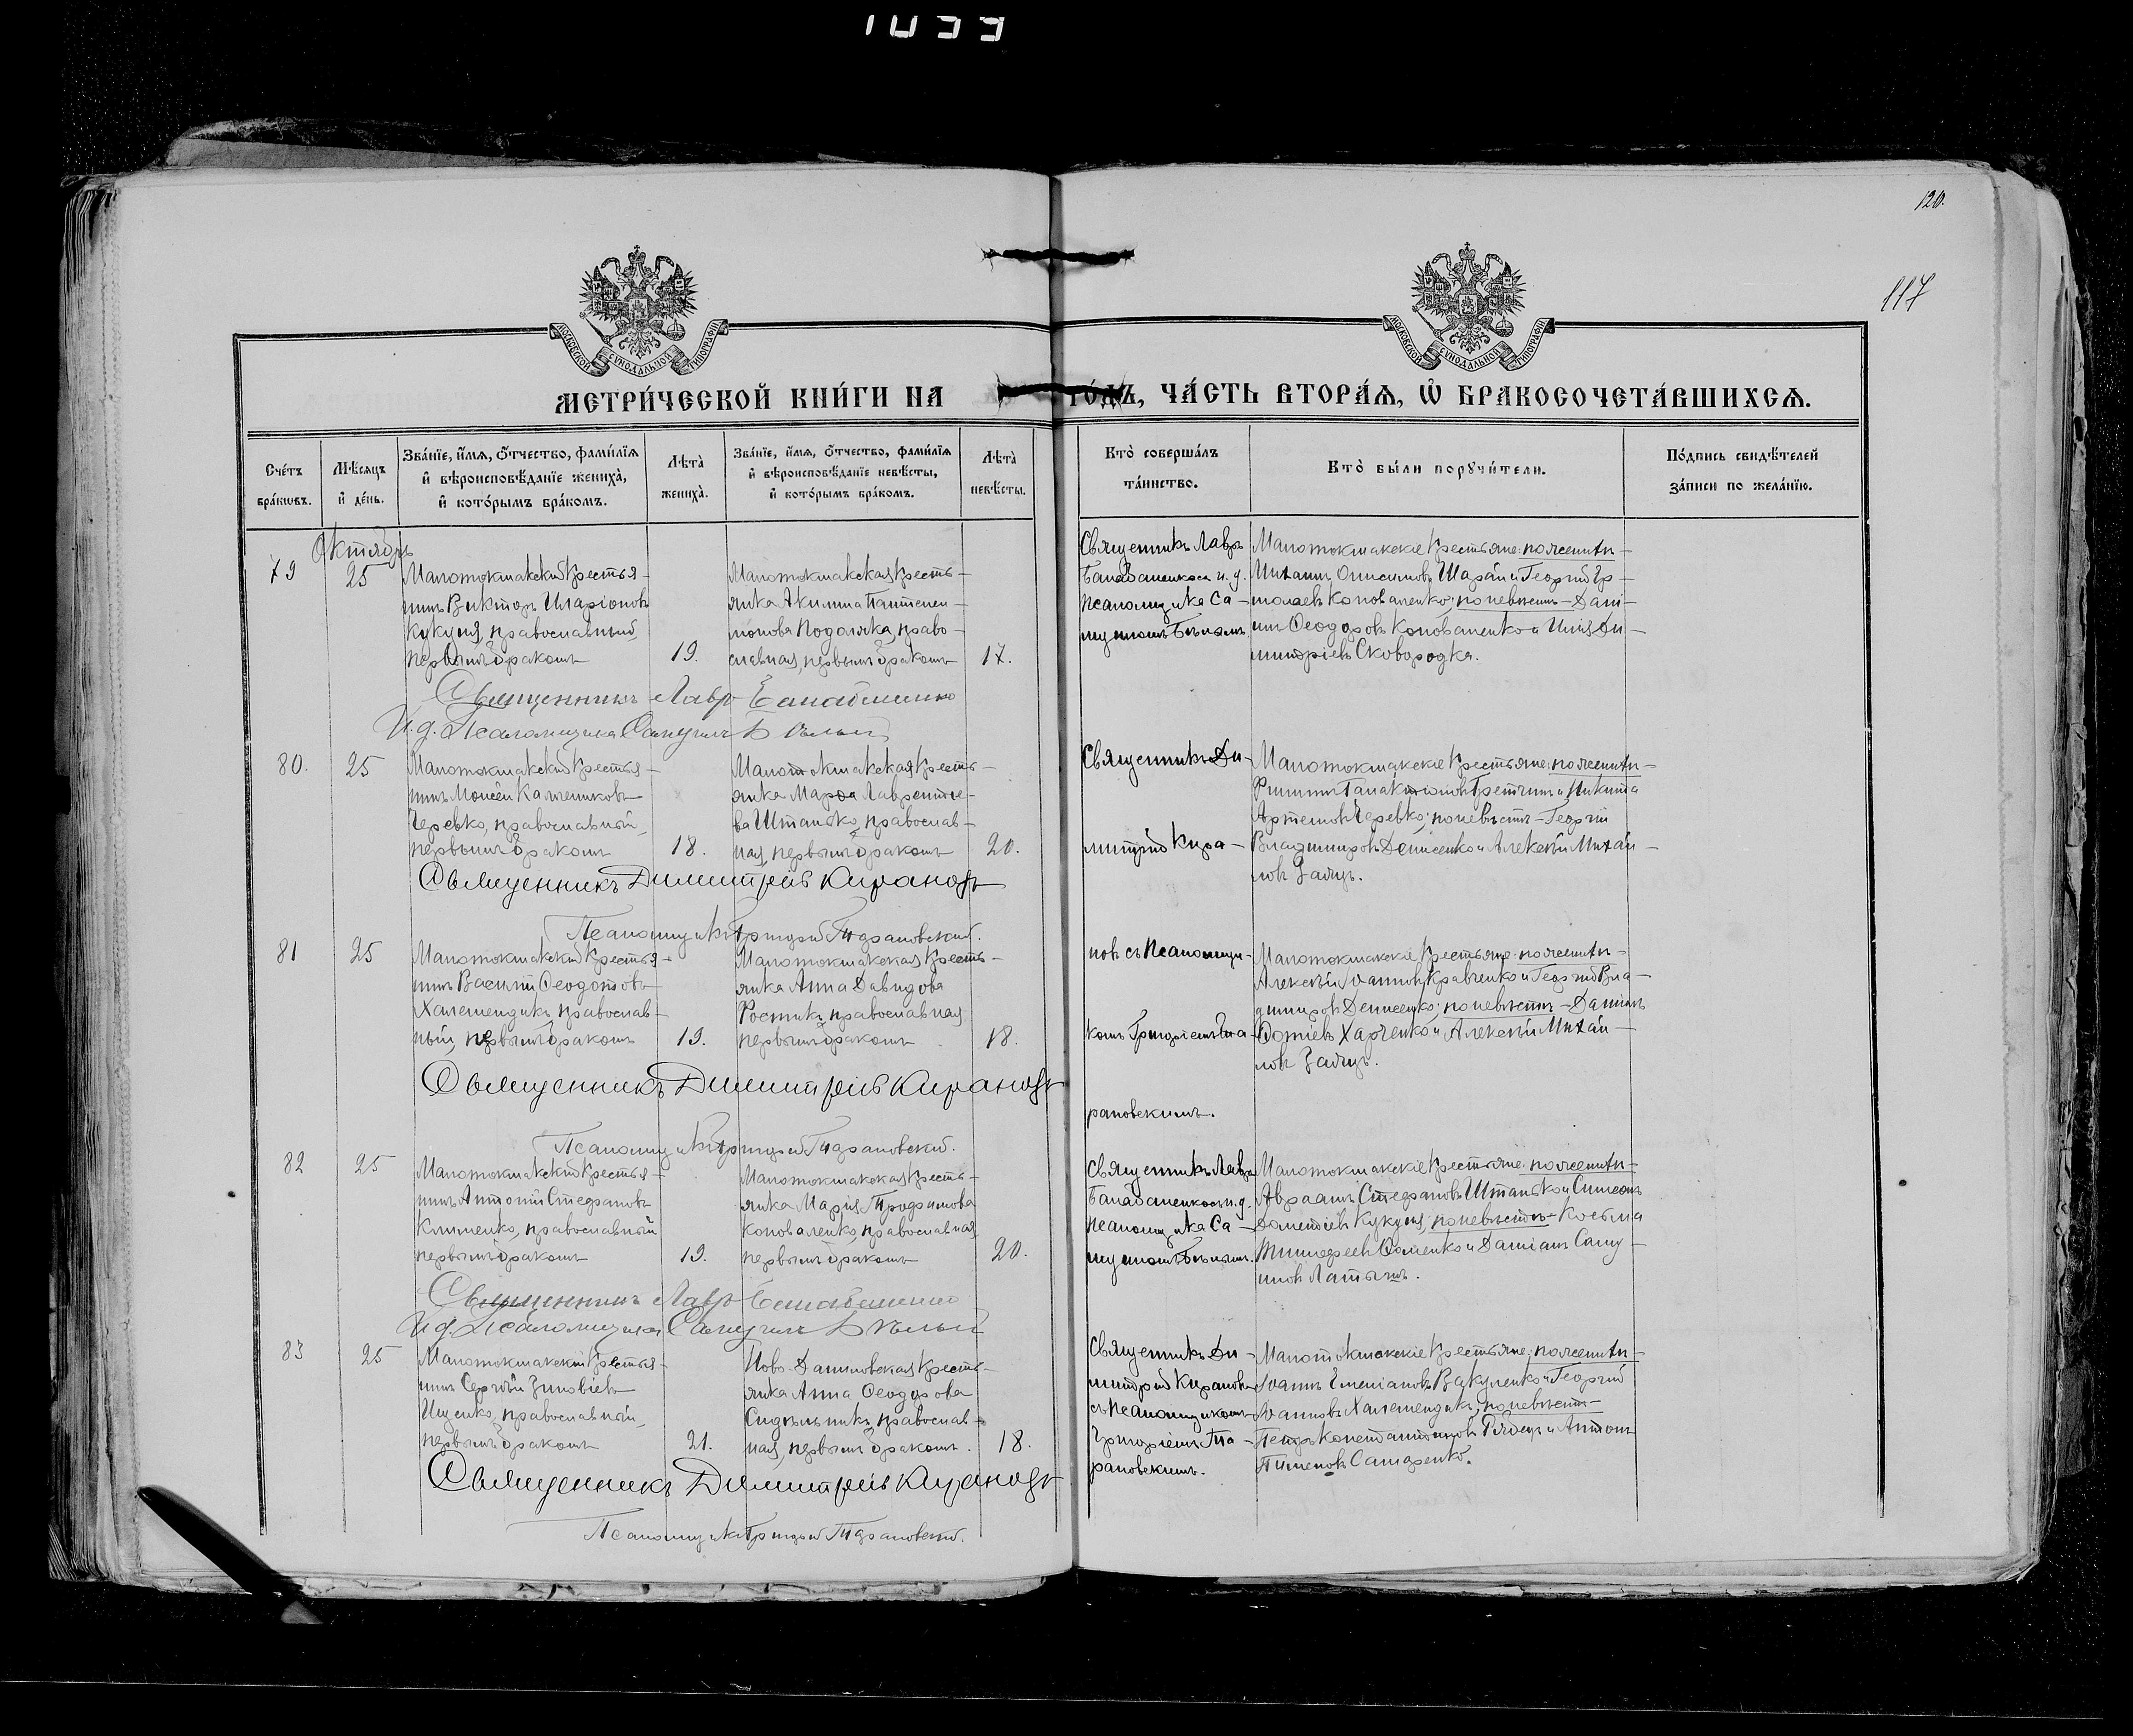 1033
120.
117
МОСКОВСКОЙ СѴНОДАЛЬНОЙ ТИПОГРАФІИ
МОСКОВСКОЙ СѴНОДАЛЬНОЙ ТИПОГРАФІИ
МЕТРИ́ЧЕСКОЙ КНИ́ГИ НА ГО́ДЪ, ЧА́СТЬ ВТОРА́Ѧ, Ѡ҆ БРАКОСОЧЕТА́ВШИХСѦ.
Сче́тъ бра́кѡвъ.
Мѣ́сѧцъ и҆ де́нь.
Зва́нїе, и҆́мѧ, ѻ҆́тчество, фами́лїѧ и҆ вѣроисповѣ́данїе жениха̀, и҆ кото́рымъ бра́комъ.
Лѣта̀ жениха̀.
Зва́нїе, и҆́мѧ, ѻ҆́тчество, фами́лїѧ и҆ вѣроисповѣ́данїе невѣ́сты, и҆ кото́рымъ бра́комъ.
Лѣта̀ невѣ́сты.
Кто̀ соверша́лъ та́инство.
Кто̀ бы́ли порꙋчи́тели.
По́дпись свидѣ́телей за́писи по жела́нїю.
Октябрь
79
25
Малотокмакскій крестья-
нинъ Викторъ Иларіоновъ
Кукуня, православный,
первымъ бракомъ
19.
Малотокмакская кресть-
янка Акилина Пантелеи-
монова Подоляка, право-
славная, первымъ бракомъ
17.
Священникъ Лавръ
Балабаненко съ и. д.
псаломщика Са-
муиломъ Бѣлымъ.
Малотокмакскіе крестьяне: по женихѣ-
Михаилъ Онисимовъ Шарай и Георгій Ер-
молаевъ Коноваленко; по невѣстѣ - Дані-
илъ Ѳеодоровъ Коноваленко и Илія Ди-
митріевъ Сковородка.
Священникъ Лавр Балабаненко
И. д. Псаломщика Самуилъ Бѣлый
80.
25
Малотокмакскій крестья-
нинъ Моисей Калинниковъ
Черевко, православный,
первымъ бракомъ
18.
Малотокмакская кресть-
янка Марѳа Лаврентіе-
ва Штанько, православ-
ная, первымъ бракомъ
20.
Священникъ Ди-
митрій Кира-
Малотокмакскіе крестьяне: по женихѣ-
Филиппъ Галактіоновъ Третчинъ и Никита
Артемовъ Черевко; по невѣстѣ - Георгій
Владиміровъ Денисенко и Алексѣй Михай-
ловъ Заяцъ.
Священникъ Димитрій Кирановъ
Псаломщикъ Григорій Тарановскій.
81
25
Малотокмакскій крестья-
нинъ Василій Ѳеодотовъ
Халемендикъ, православ-
ный, первымъ бракомъ
19.
Малотокмакская кресть-
янка Анна Давидова
Ростикъ, православная
первымъ бракомъ
18.
новъ съ псаломщи-
комъ Григоріемъ Та-
рановскимъ.
Малотокмакскіе крестьяне: по женихѣ-
Алексѣй Іоанновъ Кравченко и Георгій Вла-
диміровъ Денисенко; по невѣстѣ - Даніилъ
Фотіевъ Харченко и Алексѣй Михай-
ловъ Заяцъ.
Священникъ Димитрій Кирановъ
Псаломщикъ Григорій Тарановскій.
82
25
Малотокмакскій крестья-
нинъ Антоній Стефановъ
Клименко, православный
первымъ бракомъ
19.
Малотокмакская кресть-
янка Марія Трофимова
Коноваленко, православная
первымъ бракомъ
20.
Священникъ Лавръ
Балабаненко съ и. д.
псаломщика Са-
муиломъ Бѣлымъ.
Малотокмакскіе крестьяне: по женихѣ-
Авраамъ Стефановъ Штанько и Симеонъ
Дометіевъ Кукуня; по невѣстѣ - Косьма
Тимофеевъ Фоменко и Даміанъ Саму-
иловъ Латышъ.
Священникъ Лавр Балабаненко
И д. Псаломщика Самуилъ Бѣлый
83
25
Малотокмакскій крестья-
нинъ Сергѣй Зиновіевъ
Ищенко, православный,
первымъ бракомъ
21.
Ново-Даниловская кресть-
янка Анна Ѳеодорова
Сидѣльникъ, православ-
ная, первымъ бракомъ.
18.
Священникъ Ди-
митрій Кирановъ
съ псаломщикомъ
Григоріемъ Та-
рановскимъ.
Малотокмакскіе крестьяне; по женихѣ-
Іоаннъ Емеліановъ Вакуленко и Георгій
Іоанновъ Халемендикъ; по невѣстѣ-
Петръ Константиновъ Рябецъ и Антонъ
Пименовъ Самаренко.
Священникъ Димитрій Кирановъ
Псаломщикъ Григорій Тарановскій.